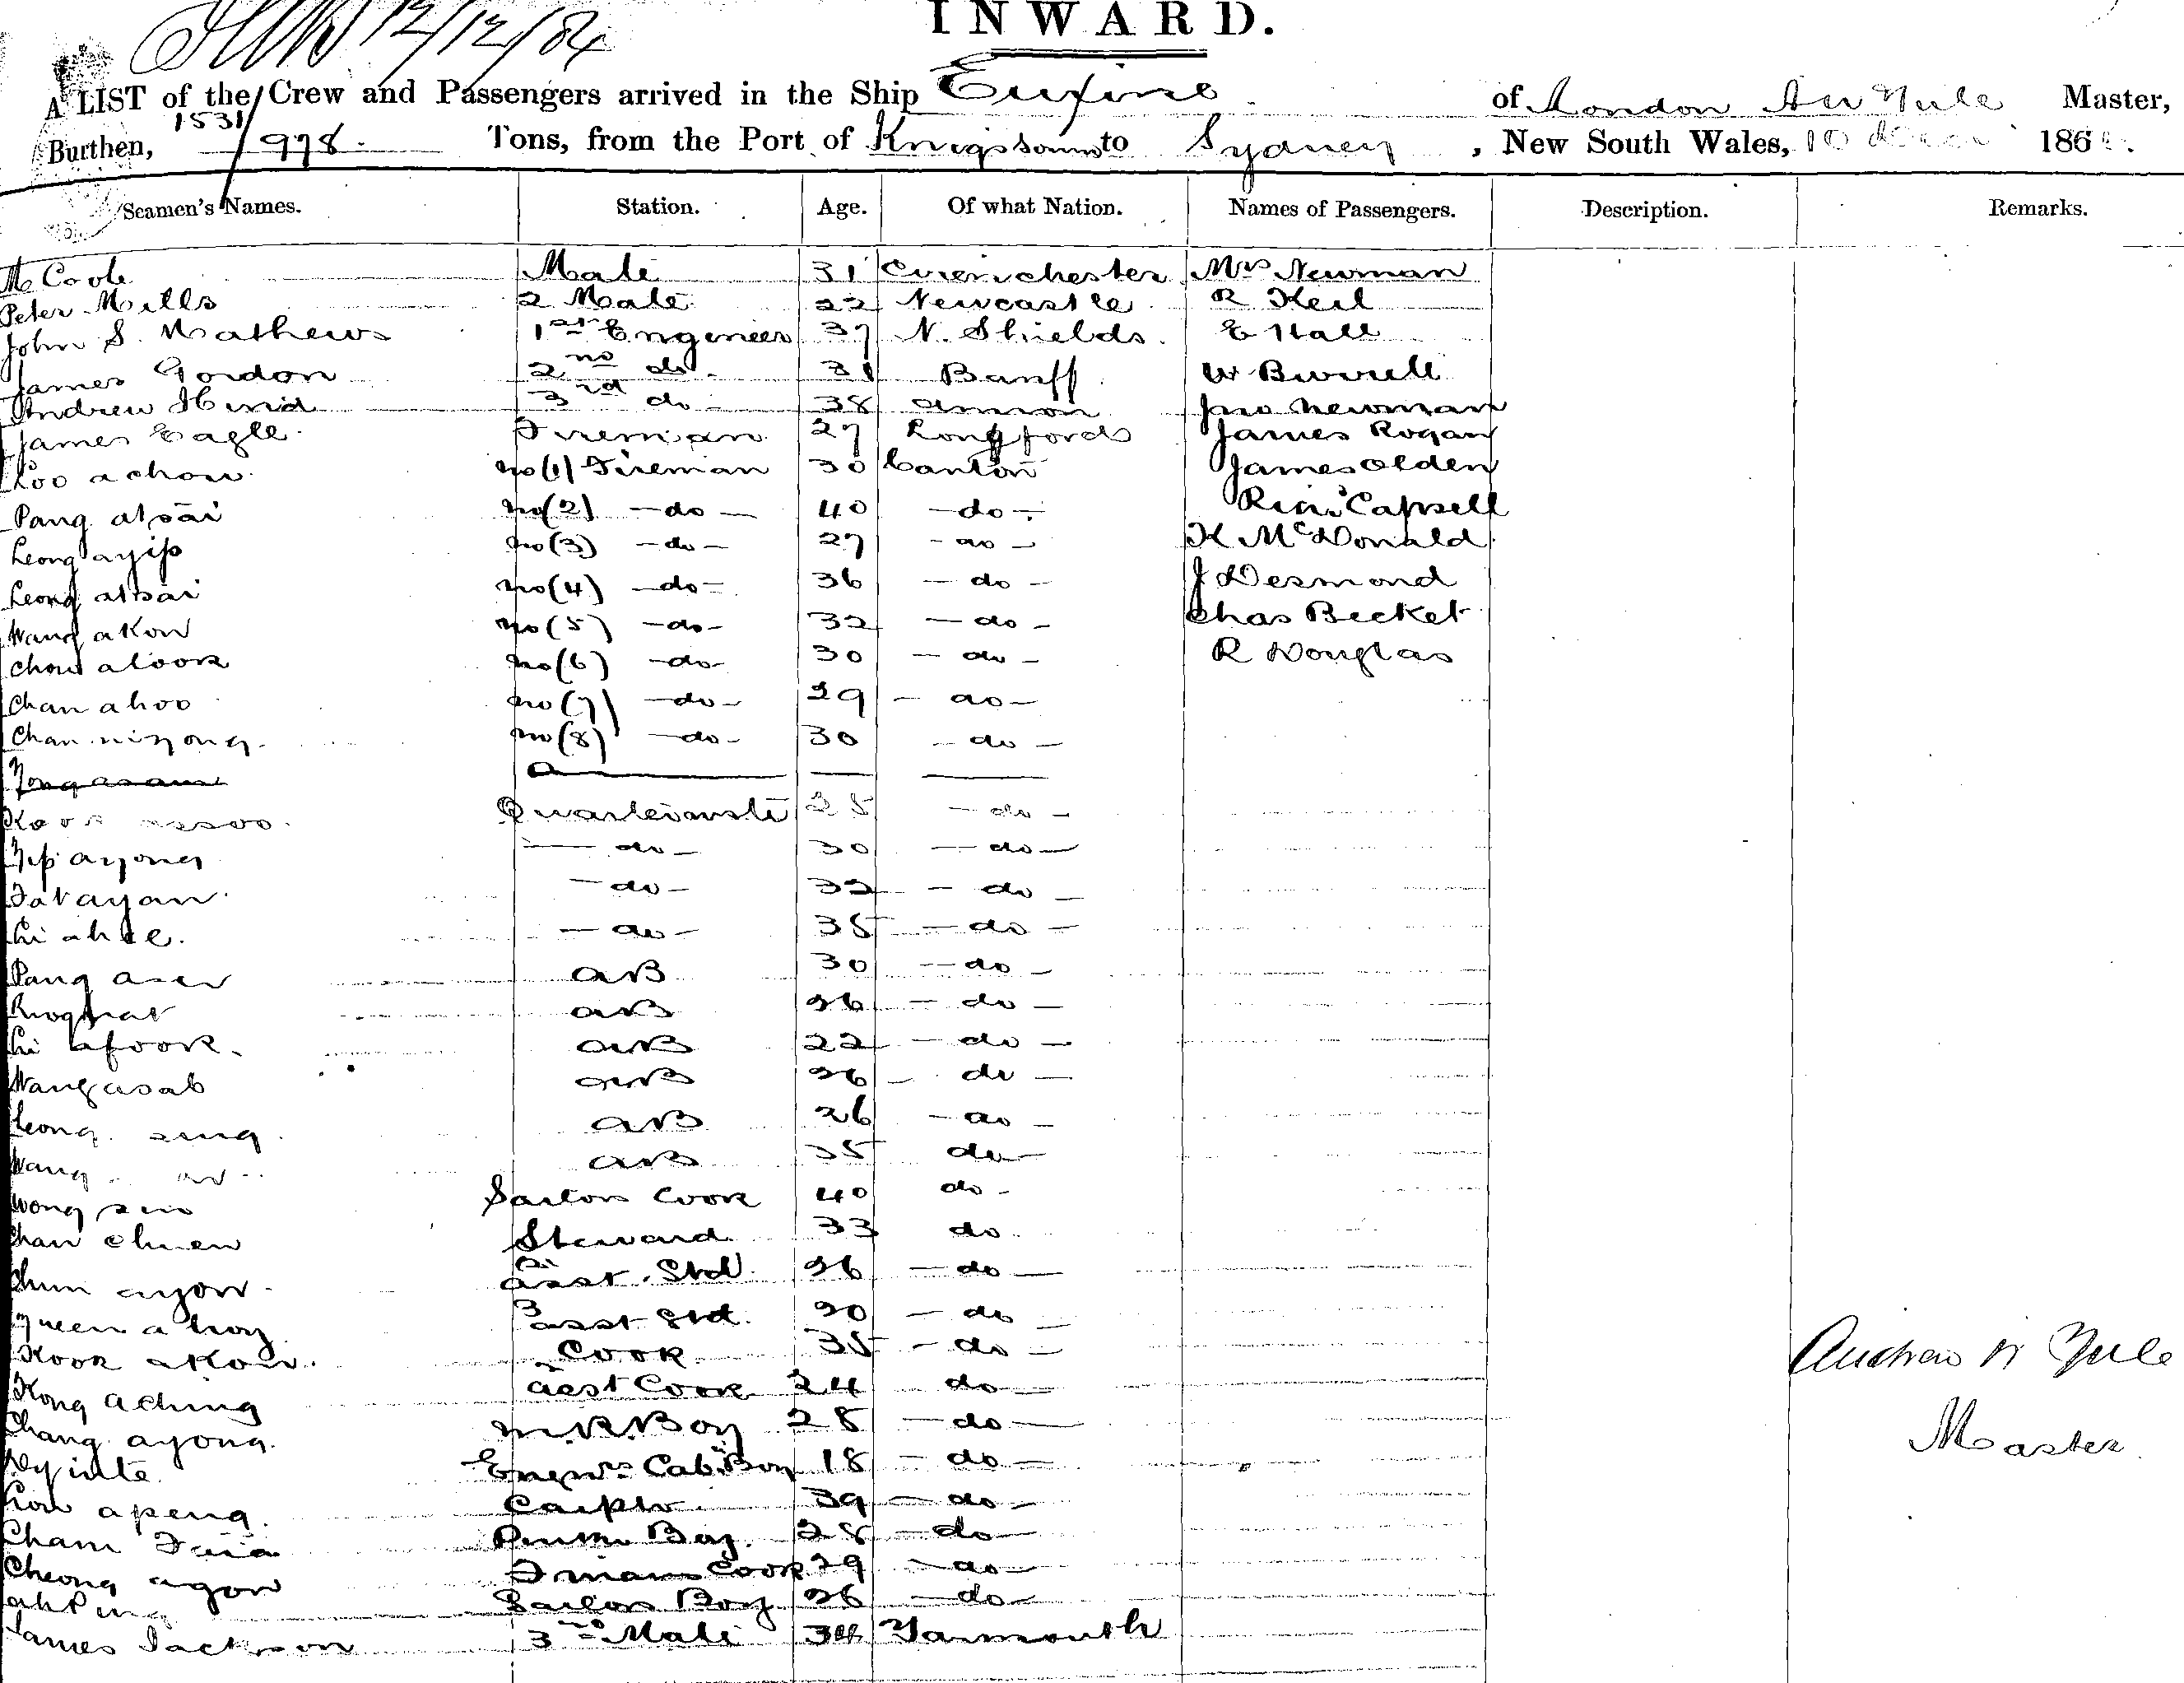 INWARD.
12/12/84
A LIST of the Crew and Passengers arrived in the Ship Euxine of London A W Yule Master,
1531
Burthen, 978 Tons, from the Port of Kingsound to Sydney, New South Wales, 10 186
Seamen's Names. Station. Age. Of what Nation. Names of Passengers. Description. Remarks.
M Coole Mate 31 Mrs Newman
Peter Mills 2 Mate 22 Newcastle R Keil
John S. Mathews 1st Engineer 37 N. Shields E Hall
James Gordon 2nd do 31 Banff W Burrell
Andrew Hurid 3rd do 38 Annan Jno Newman
James Eagle Fireman 27 Longford James Rogan
Koo achow no (1) Fireman 30 Canton James Olden
Pang atsai no (2) - do - 40 - do - Capsell
Leong ayip no (3) - do - 27 - do - K McDonald
Leong atsai no (4) - do - 36 - do - J Desmond
Wang akow no (5) - do - 32 - do - Chas Becket
Chow alook no (6) - do - 30 - do - R Douglas
Chan ahoo no (7) - do - 29 - do -
Chan no (8) - do - 30 - do -
Yong asam
Quartermste 28 - do -
Yip ayong - do - 30 - do -
Tatayan - do - 32 - do -
Li ahee - do - 35 - do -
Pang AB 30 - do -
AB 26 - do -
Li afook AB 22 - do -
Wang asab AB 26 - do -
Leong sing AB 26 - do -
Wang AB 35 do -
Wong Sailors Cook 40 do -
Chan chuen Steward 33 do
Chun ayow 2 asst. Std 26 - do -
Queen ahoy 3 asst Std. 20 - do -
Kook akow Cook 35 - do -
Kong aching asst Cook 24 do -
Chang ayong M.R. Boy 28 - do -
Engrs Cab. Boy 18 - do -
Low apeng Carptr 39 - do -
Cham Boy 28 - do -
Cheong agow Fmans Cook 29 - do -
ah Ping Sailors Boy 26 - do -
James Jackson 3rd Mate 34 Yarmouth
Andrew W Yule
Master